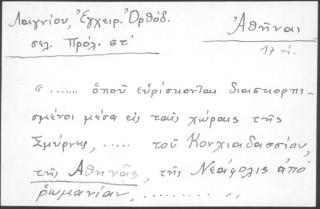 Λαιγνίου, Ἐγχειρ. Ὀρθόδ.
σελ. Πρόλ. στʹ
Ἀθῆναι
17 αἰ.
«...... ὁποῦ εὑρίσκονται διασκορπι-
σμένοι μέσα εἰς ταῖς χώραις τῆς
Σμύρνης, ..... τοῦ Κονχιαδασσίου,
τῆς Ἀθηνᾶς, τῆς Νεάπολις ἀπό
ῥωμανίαν, ......... »